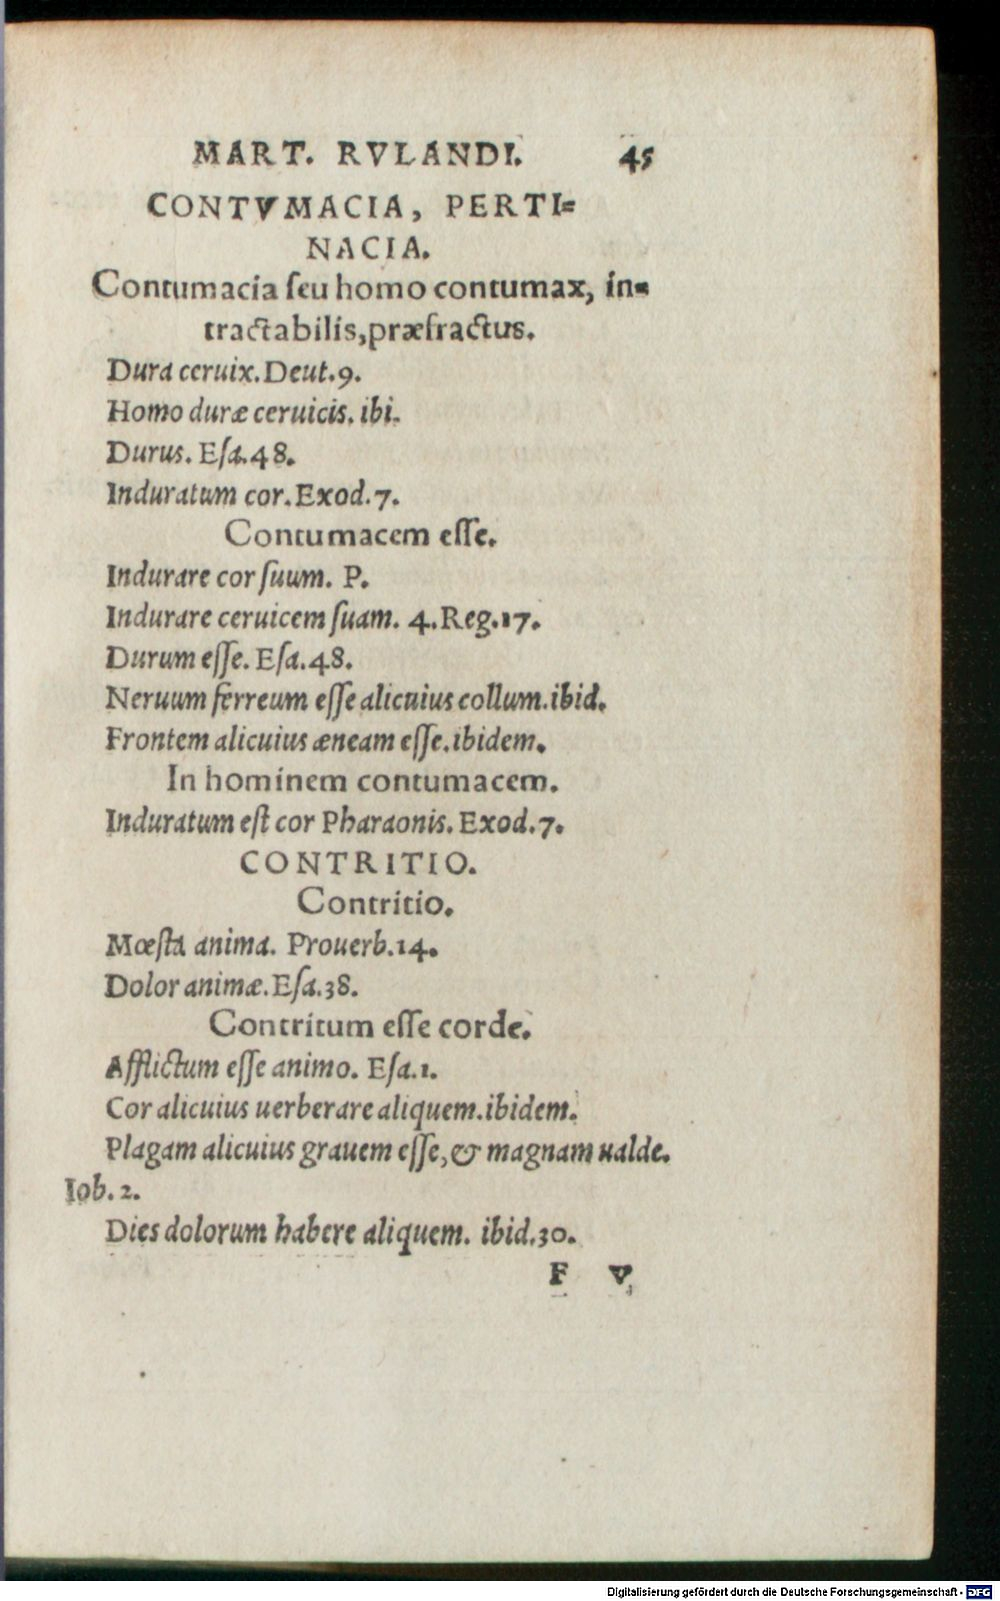 MART. RVLANDI. 45
CONTVMACIA, PERTI=
NACIA.
Contumacia ſeu homo contumax, in=
tractabilis, præfractus.
Dura ceruix. Deut. 9.
Homo duræ ceruicis. ibi.
Durus. Eſa. 48.
Induratum cor. Exod. 7.
Contumacem eſſe.
Indurare cor ſuum. P.
Indurare ceruicem ſuam. 4. Reg. 17.
Durum eſſe. Eſa. 48.
Neruum ferreum eſſe alicuius collum. ibid.
Frontem alicuius æneam eſſe. ibidem.
In hominem contumacem.
Induratum eſt cor Pharaonis. Exod. 7.
CONTRITIO.
Contritio.
Mœſta anima. Prouerb. 14.
Dolor animæ. Eſa. 38.
Contritum eſſe corde.
Afflictum eſſe animo. Eſa. 1.
Cor alicuius uerberare aliquem. ibidem.
Plagam alicuius grauem eſſe, & magnam ualde.
Iob. 2.
Dies dolorum habere aliquem. ibid. 30.
F V
Digitalisierung gefördert durch die Deutsche Forschungsgemeinschaft - DFG